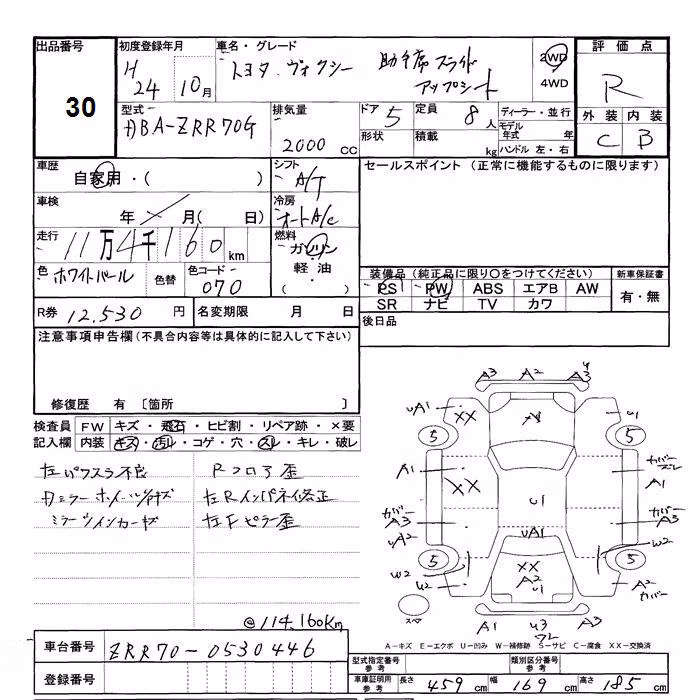 出品番号
30
初度登録年月
H 24 10月
車名・グレード
トヨタ ヴォクシー 助手席スライド
アップシート
2WD
4WD
評価点
R
外装 内装
C B
型式
DBA-ZRR70G
排気量
2000 cc
ドア 5
形状
定員 8人
積載 kg
ディーラー・並行
モデル年式 年
ハンドル 左・右
車歴
自家用・( )
シフト
A/T
セールスポイント (正常に機能するものに限ります)
車検
年 月( 日)
冷房
オートA/C
走行
11万4千160km
燃料
ガソリン
軽油・
( )
色 ホワイトパール
色替
色コード 070
装備品 (純正品に限り○をつけてください)
PS PW ABS エアB AW
SR ナビ TV カワ
新車保証書
有・無
R券 12.530円
名変期限 月 日
後日品
注意事項申告欄(不具合内容等は具体的に記入して下さい)
修復歴 有 〔箇所 〕
検査員 FW キズ・飛石・ヒビ割・リペア跡・×要
記入欄 内装 キズ・汚レ・コゲ・穴・スレ・キレ・破レ
左パワスラ不良 Rフロア歪
左RインパネイL修正
ミラーウインカーキズ 左Fピラー歪
@114,160Km
A3 A2 A3
uA1 XX u1
5 5
A1 XX カバースレ A1
カバーA3 u1 カバーA3
uA2 uA1 w2
5 XX 5
w2 A2 A2
u2 u1 カバー
A1 u3 A3
スペア ワレ
A-キズ E-エクボ U-凹み W-補修跡 S-サビ C-腐食 XX-交換済
車台番号 ZRR70-0530446
登録番号
型式指定番号 参考
類別区分番号 参考
車庫証明用 参考 長さ 459cm 幅 169cm 高さ 185cm